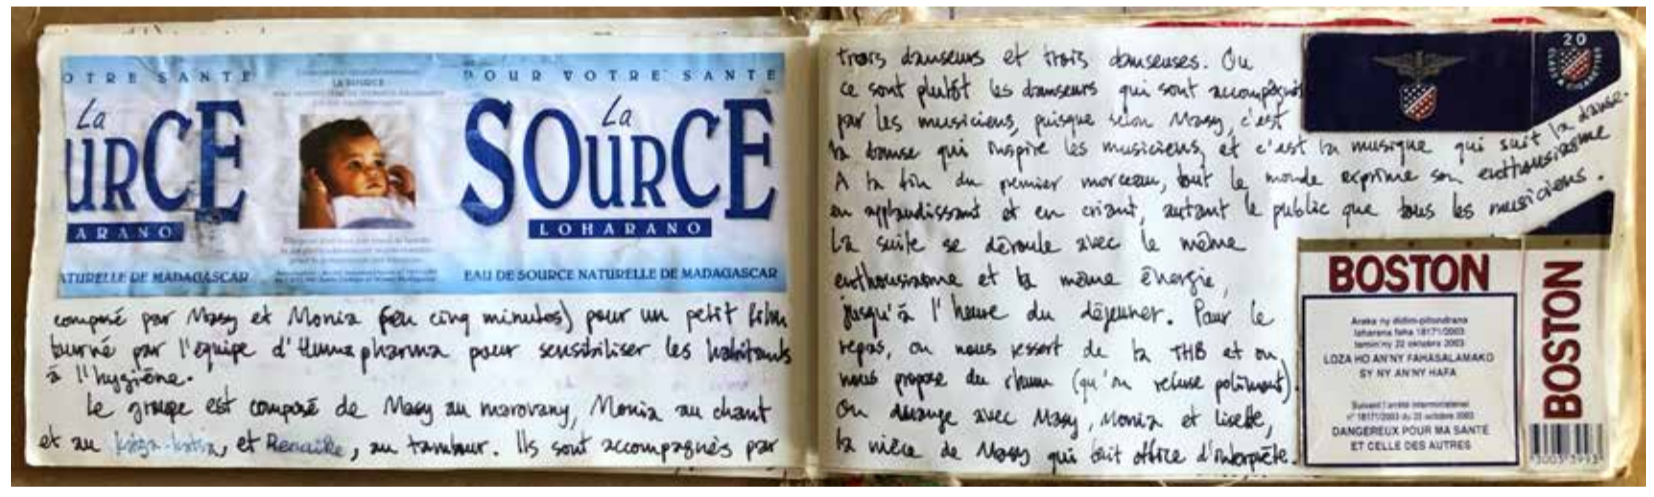 OTRE SANTE
La
URCE
ARANO
ATURELLE DE MADAGASCAR
LA SOURCE
POUR VOTRE SANTE
La
SOURCE
LOHARANO
EAU DE SOURCE NATURELLE DE MADAGASCAR
composé par Masy et Monia (en cinq minutes) pour un petit film
tourné par l'équipe d'Humapharma pour sensibiliser les habitants
à l'hygiène.
Le groupe est composé de Masy au marovany, Monia au chant
et au katsa-katsa, et, au tambour. Ils sont accompagnés par
trois danseurs et trois danseuses. Ou
ce sont plutôt les danseurs qui sont accompagnés
par les musiciens, puisque selon Masy, c'est
la danse qui inspire les musiciens, et c'est la musique qui suit la danse.
A la fin du premier morceau, tout le monde exprime son enthousiasme
en applaudissant et en criant, autant le public que tous les musiciens.
La suite se déroule avec le même
enthousiasme et la même énergie,
jusqu'à l'heure du déjeuner. Pour le
repas, on nous ressert de la THB et on
nous propose du rhum (qu'on refuse poliment).
On échange avec Masy, Monia et Lisette,
la nièce de Masy qui fait office d'interprète.
20
BOSTON
Araka ny didim-pitondrana
laharana faha 18171/2003
tamin'ny 22 oktobra 2003
LOZA HO AN'NY FAHASALAMAKO
SY NY AN'NY HAFA
Suivant l'arrêté interministériel
n° 18171/2003 du 22 octobre 2003
DANGEREUX POUR MA SANTE
ET CELLE DES AUTRES
BOSTON